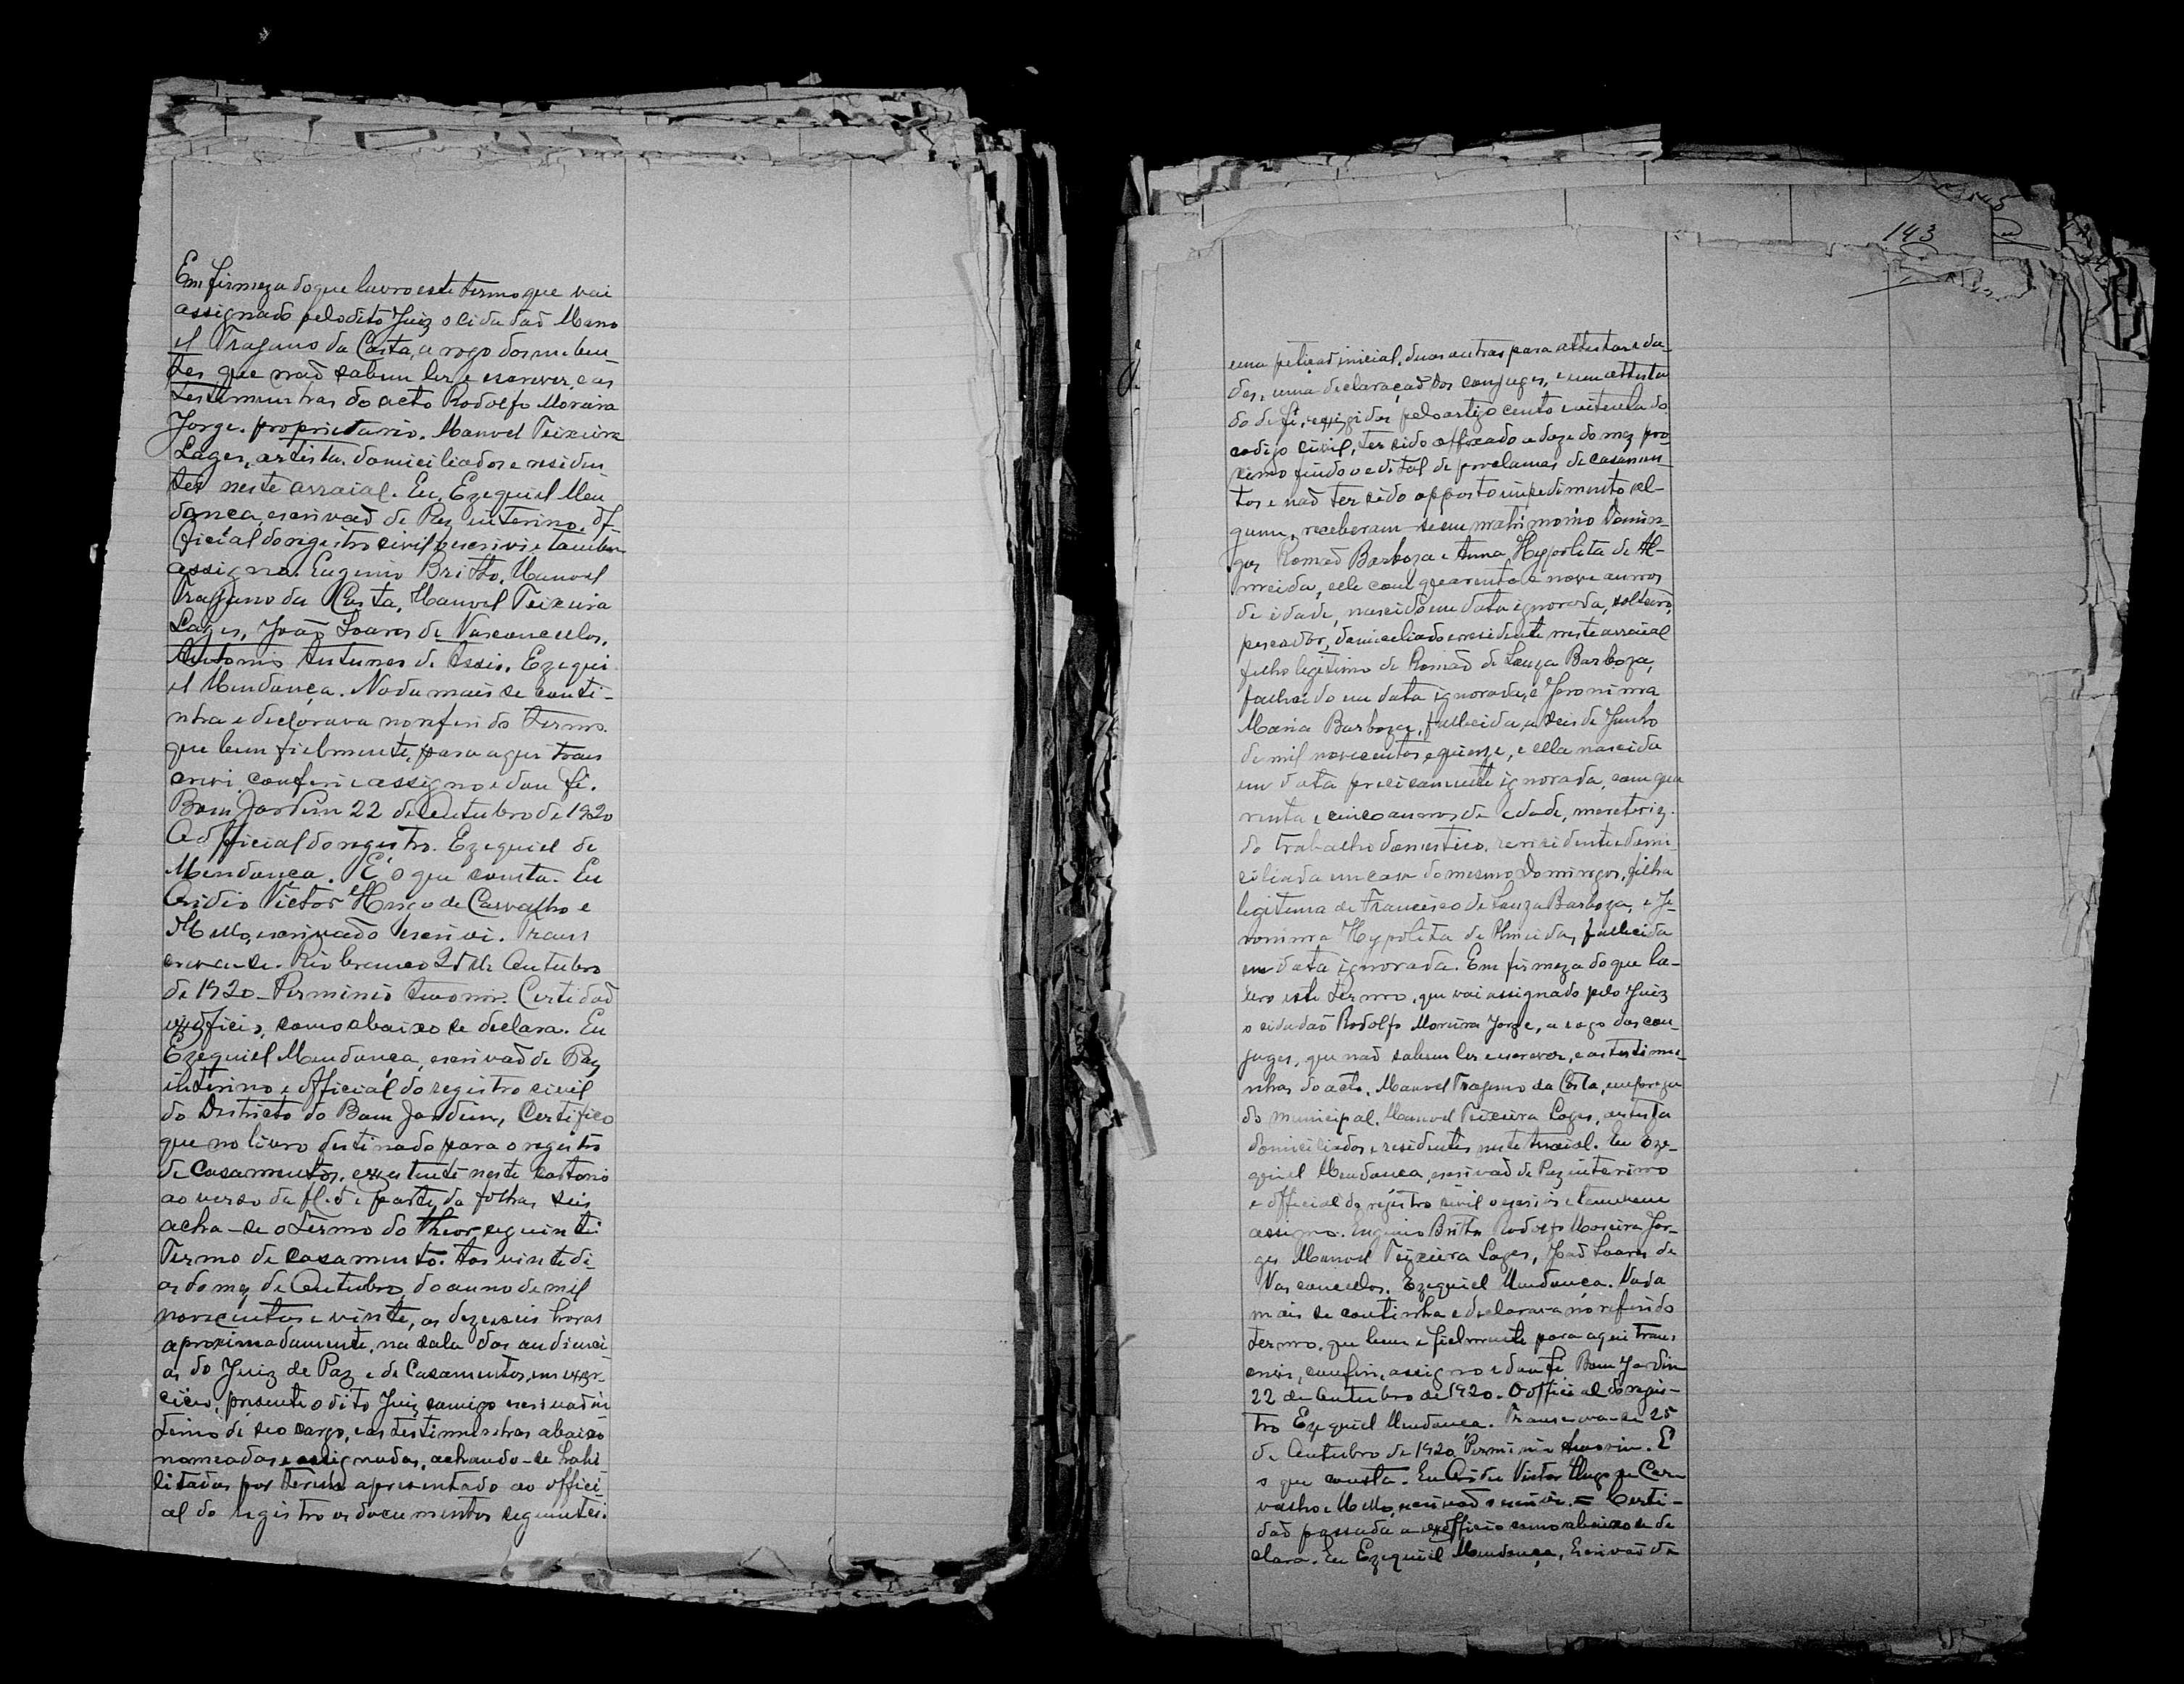 Em firmeza do que lavro este termo que vai
assignado pelo dito Juiz o cidadaõ Mano
el Trajano da Costa, a rogo dos nuben-
tes que naõ sabem ler e escrever, e as
testemunhas do acto Rodolfo Moreira
Jorge, proprietario, Manoel Teixeira
Lages, artista, domiciliados e residen
tes neste arraial. Eu, Ezequiel Men
donça, escrivaõ de Paz interino, of-
ficial do registro civil o escrivi e tambem
assigno. Eugenio Britto, Manoel
Trajano da Costa, Manoel Teixeira
Lages, João Soares de Vasconcellos,
Antonio Antunes de Assis, Ezequi
el Mendonça. Nada mais se conti-
nha e declarava no referido termo
que bem fielmente, para aqui trans
crivi, conferi e assigno e dou fé.
Bom Jardim 22 de Outubro de 1920
O official do registro. Ezequiel de
Mendonça. E' o que consta. Eu
Ovidio Victor Hugo de Carvalho e
Mello, escrivaõ o escrivi. Trans
creva-se. Rio Branco 25 de Outubro
de 1920 - Perminio Amorim. Certidaõ
exofficio, como abaixo se declara. Eu
Ezequiel Mendonça, escrivaõ de Paz
interino e official do registro civil
do Districto do Bom Jardim, Certifico
que no livro destinado para o registro
de Casamentos, existente neste Cartorio
ao verso da fl. 5 e parte da folhas seis
acha-se o termo do theor seguinte:
Termo de casamento. Aos vinte di-
as do mez de Outubro, do anno de mil
novecentos e vinte, as dezeseis horas
aproximadamente, na sala das audienci-
as do Juiz de Paz e de Casamentos, em exer-
cicio, presente o dito Juiz comigo escrivaõ in
terino de seo cargo, e as testimunhas abaixo
nomeadas e assignadas, achando-se habi
litados por terem apresentado ao offici-
al do registro os documentos seguintes:
143
uma petiçaõ inicial, duas outras para attestar e da-
des, uma declaraçaõ dos conjuges, e um attesta
do de fé, exigidos pelo artigo cento e oitenta do
codigo civil, ter sido affixado a doze do mez pro-
ximo findo o edital de proclamas de casamen-
tos e naõ ter sido opposto impedimento al-
gum, receberam-se em matrimonio Domin-
gos Romaõ Barboza e Anna Hypolita de Al-
meida, elle com quarenta e nove annos
de idade, nascido em data ignorada, solteiro,
pescador, domiciliado e residente neste arraial
filho legitimo de Romaõ de Souza Barboza,
fallecido em data ignorada, e Jeronima
Maria Barboza, fallecida, a seis de Junho
de mil novecentos e quinze, e ella nascida
em data precisamente ignorada, com qua
renta e cinco annos de edade, meretriz
do trabalho domestico, residente e domi
ciliada em casa do mesmo Domingos, filha
legitima de Francisco de Souza Barboza, e Je-
ronima Hypolita de Almeida, fallecida
em data ignorada. Em firmeza do que la-
vro este termo, que vai assignado pelo Juiz
o cidadaõ Rodolfo Moreira Jorge, a rogo dos con-
juges, que naõ sabem ler e escrever, e as testimu-
nhas do acto, Manoel Trajano da Costa, emprega
do municipal, Manoel Teixeira Lages, artista
domiciliados e residentes neste arraial. Eu Eze-
quiel Mendonça, escrivaõ de Paz interino
e official do registro civil o escrivi e tambem
assigno. Eugenio Britto, Rodolfo Moreira Jor-
ge, Manoel Teixeira Lages, Joaõ Soares de
Vasconcellos, Ezequiel Mendonça. Nada
mais se continha e declarava no referido
termo, que bem e fielmente para aqui trans
crivi, conferi, assigno e dou fé. Bom Jardim
22 de Outubro de 1920. O official do regis-
tro Ezequiel Mendonça. Transcreva-se 25
de Outubro de 1920 Perminio Amorim. E
o que consta. Eu Ovidio Victor Hugo de Car-
valho e Mello, escrivaõ o escrivi. = Certi-
daõ passada a exofficio como abaixo se de
clara. Eu Ezequiel Mendonça, Escrivaõ de